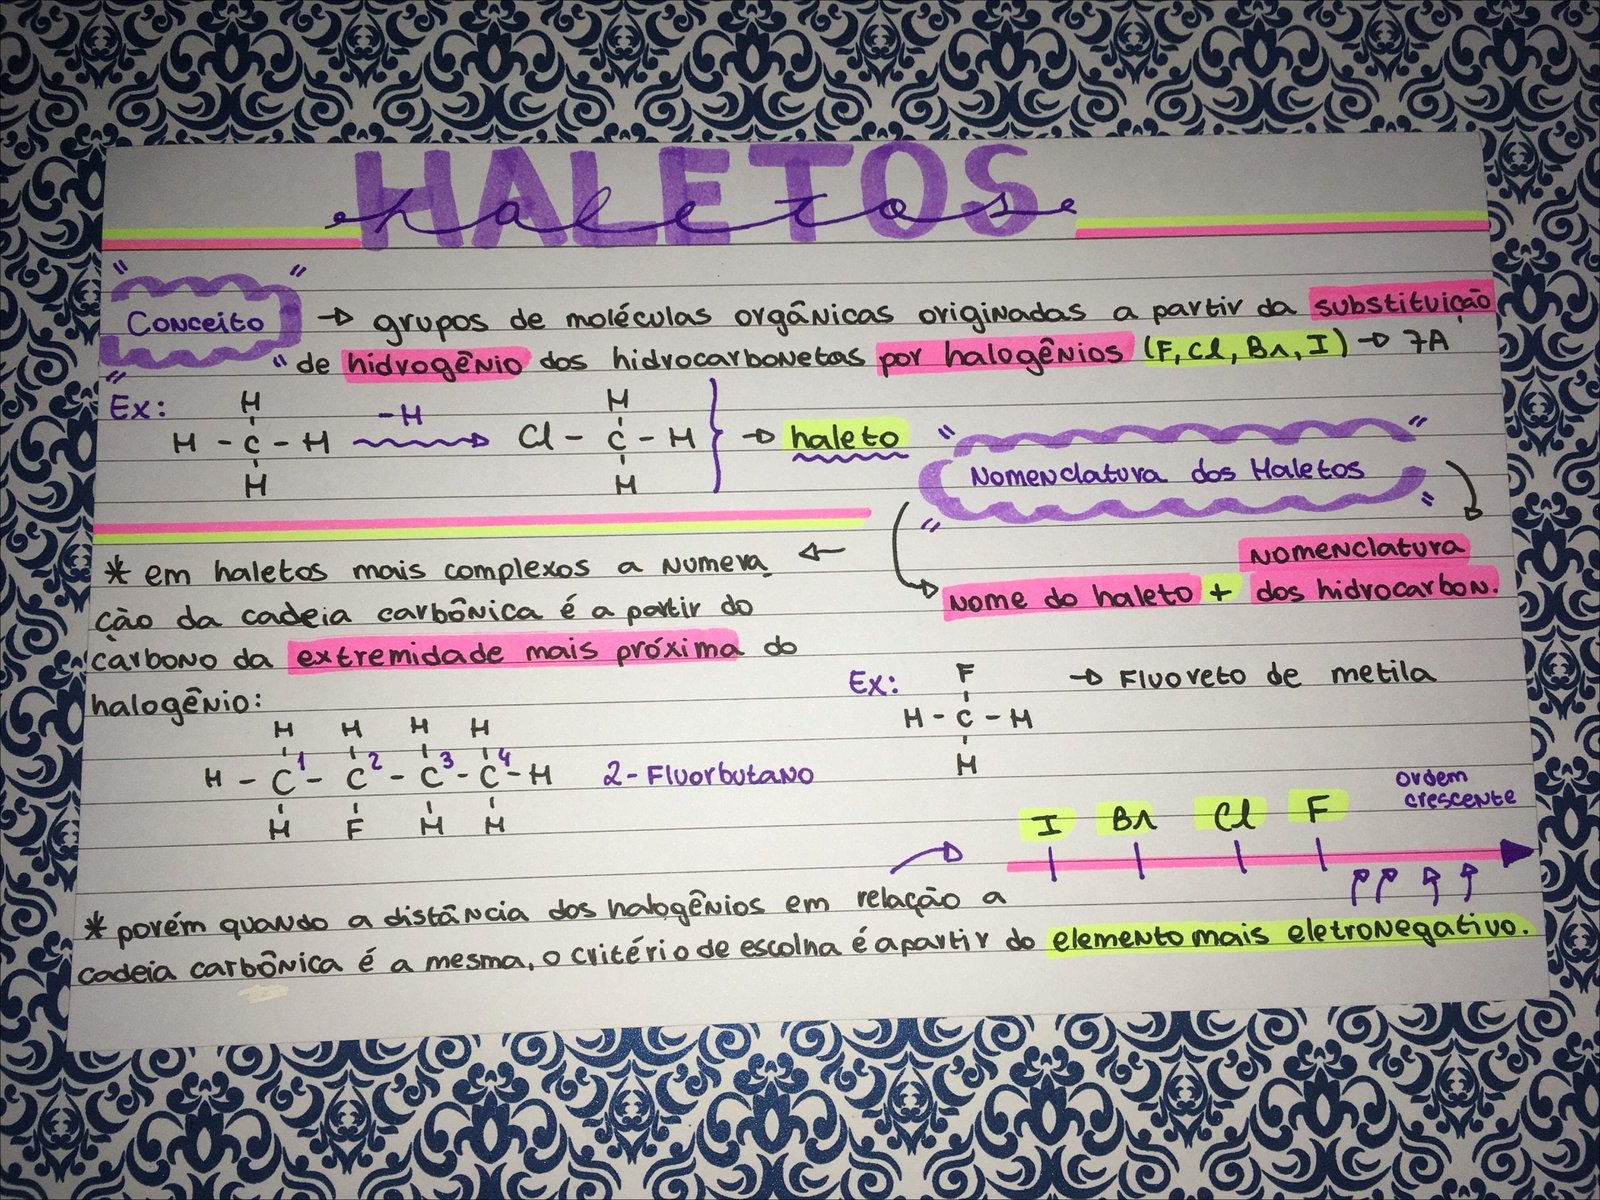 HALETOS
haletos
Conceito → grupos de moléculas orgânicas originadas a partir da substituição
de hidrogênio dos hidrocarbonetas por halogênios (F, Cl, Br, I) → 7A
Ex:
H
H - C - H
H
-H
H
Cl - C - H
H
→ haleto
Nomenclatura dos Haletos
nome do haleto + nomenclatura
dos hidrocarbon.
* em haletos mais complexos a numera
ção da cadeia carbônica é a partir do
carbono da extremidade mais próxima do
halogênio:
H H H H
H - C1 - C2 - C3 - C4 - H
H F H H
2-Fluorbutano
Ex:
F
H - C - H
H
→ Fluoreto de metila
ordem
crescente
I Br Cl F
* porém quando a distância dos halogênios em relação a
cadeia carbônica é a mesma, o critério de escolha é a partir do elemento mais eletronegativo.